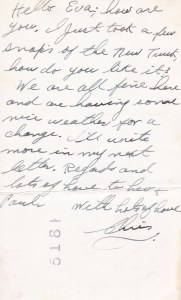 Hello Eva; how are
you. I Just took a few
snaps of the New Truck,
how do you like it!
We are all fine here
and are having some
nice weather for a
change. I'll write
more in my next
letter. Regards and
lots of love to
Paul
With lots of love
Chris.
5188